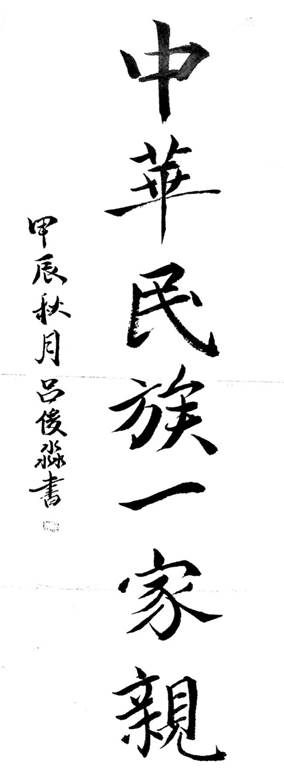 中華民族一家親
甲辰秋月吕俊淼書